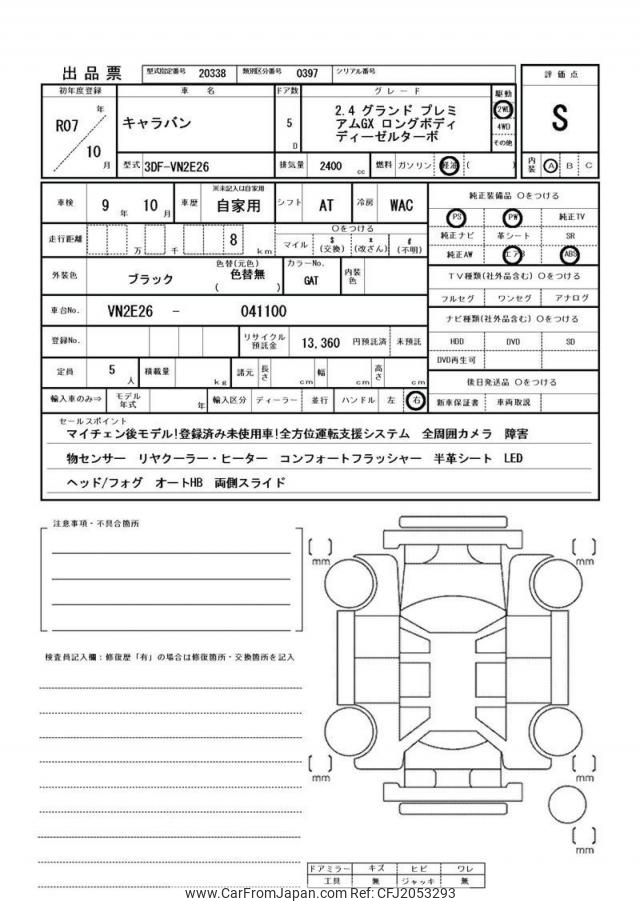 出品票
型式指定番号 20338 類別区分番号 0397 シリアル番号
評価点
初年度登録 車名 ドア数 グレード 駆動
R07 年 10 月
キャラバン
5 D
2.4 グランド プレミ
アムGX ロングボディ
ディーゼルターボ
2WD
4WD
その他
S
型式 3DF-VN2E26 排気量 2400 cc 燃料 ガソリン 軽油 ( )
内装 A B C
車検 9 年 10 月 車歴 ※未記入は自家用 自家用 シフト AT 冷房 WAC
純正装備品 ○をつける
PS PW 純正TV
走行距離 万 千 8 km
○をつける
マイル $ (交換) * (改ざん) # (不明)
純正ナビ 革シート SR
純正AW エアB ABS
外装色 ブラック 色替(元色) 色替無 ( ) カラーNo. GAT 内装色
TV種類(社外品含む) ○をつける
フルセグ ワンセグ アナログ
車台No. VN2E26 - 041100
ナビ種類(社外品含む) ○をつける
登録No. リサイクル預託金 13,360 円預託済 未預託
HDD DVD SD
DVD再生可
定員 5 人 積載量 kg 諸元 長さ cm 幅 cm 高さ cm
後日発送品 ○をつける
輸入車のみ⇒ モデル年式 年 輸入区分 ディーラー 並行 ハンドル 左 右
新車保証書 車両取説
セールスポイント
マイチェン後モデル!登録済み未使用車!全方位運転支援システム 全周囲カメラ 障害
物センサー リヤクーラー・ヒーター コンフォートフラッシャー 半革シート LED
ヘッド/フォグ オートHB 両側スライド
注意事項・不具合箇所
[ ] mm
[ ] mm
検査員記入欄:修復歴「有」の場合は修復箇所・交換箇所を記入
[ ] mm
[ ] mm
[ ] mm
ドアミラー キズ ヒビ ワレ
工具 無 ジャッキ 無
www.CarFromJapan.com - CFJ2053293